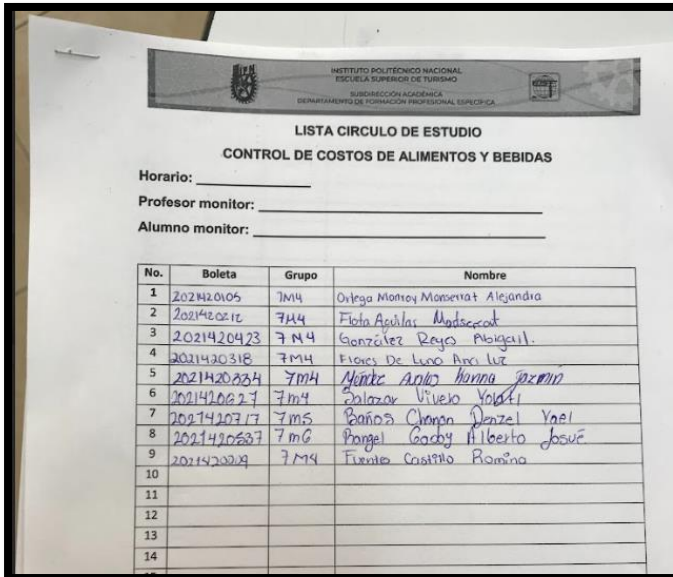 INSTITUTO POLITÉCNICO NACIONAL
ESCUELA SUPERIOR DE TURISMO
SUBDIRECCIÓN ACADÉMICA
DEPARTAMENTO DE FORMACIÓN PROFESIONAL ESPECÍFICA
LISTA CIRCULO DE ESTUDIO
CONTROL DE COSTOS DE ALIMENTOS Y BEBIDAS
Horario:
Profesor monitor:
Alumno monitor:
No. Boleta Grupo Nombre
1 2021420105 7M4 Ortega Monroy Monserrat Alejandra
2 7M4 Flota Aguilar
3 2021420423 7M4 González Reyes Abigail.
4 2021420318 7M4 Flores De Luna Ana luz
5 2021420334 7m4 Hanna Jazmin
6 2021420627 7m4 Salazar Vivero
7 2021420717 7m5 Baños Chanon Denzel Yael
8 2021420537 7m6 Rangel Godoy Alberto Josué
9 7M4 Fuentes Castillo Romina
10
11
12
13
14